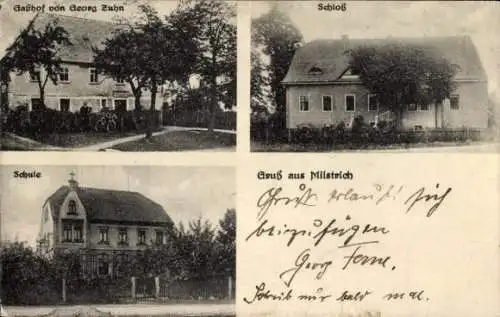 Gasthof von Georg Zuhn
Schloß
Schule
Gruß aus Milstrich
Gruß erlaubt sich
beizufügen
Georg
Schreib mir bald mal.